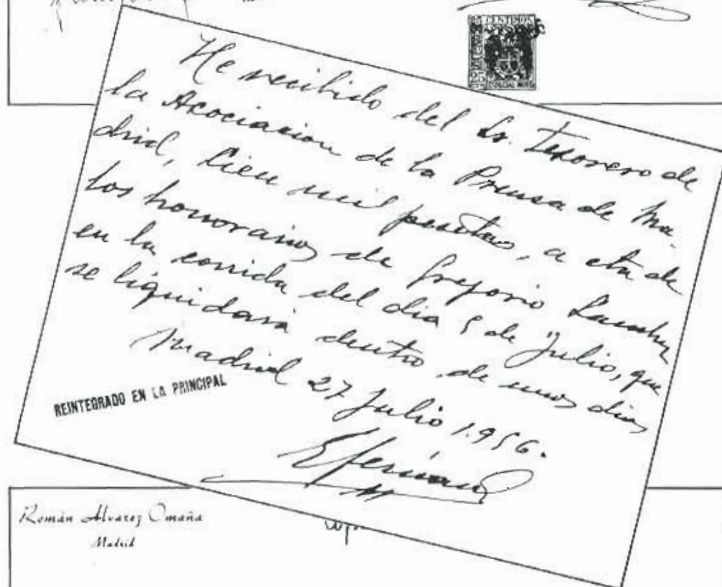 25 CENTIMOS
ESPECIAL MOVIL
He recibido del Sr. Tesorero de
la Asociacion de la Prensa de Ma-
drid, Cien mil pesetas, a cta de
los honorarios de Gregorio Sanchez
en la corrida del dia 5 de Julio, que
se liquidará dentro de unos dias
Madrid 27 Julio 1.956.
REINTEGRADO EN LA PRINCIPAL
Román Alvarez Omaña
Madrid